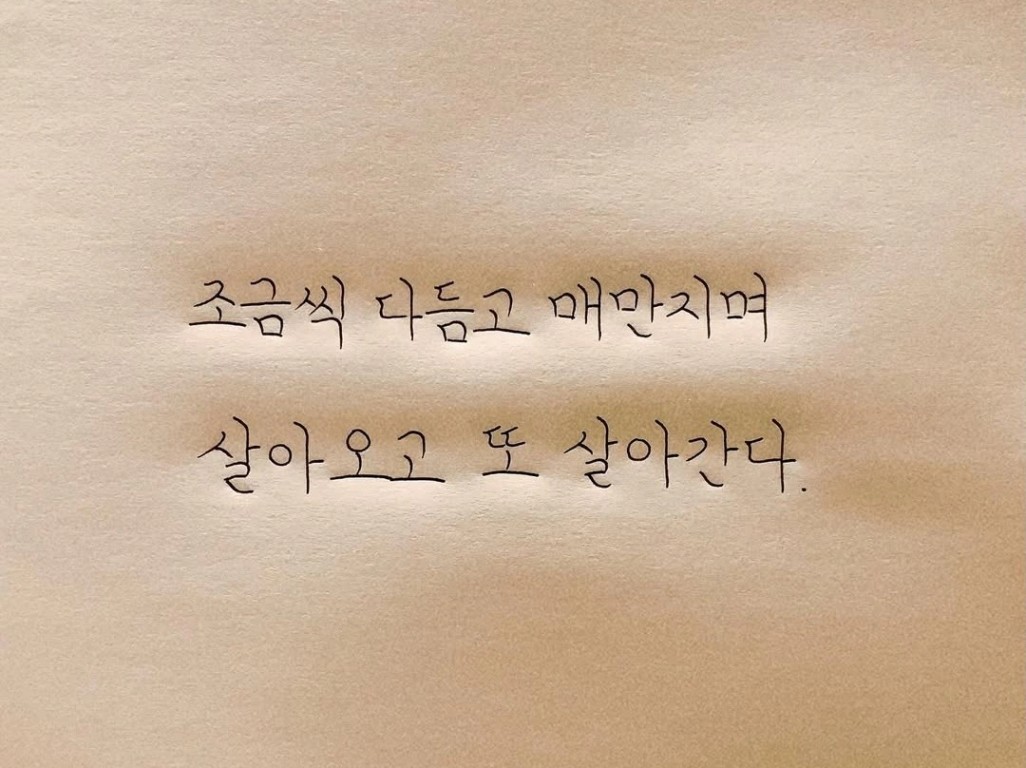 조금씩 다듬고 매만지며
살아오고 또 살아간다.